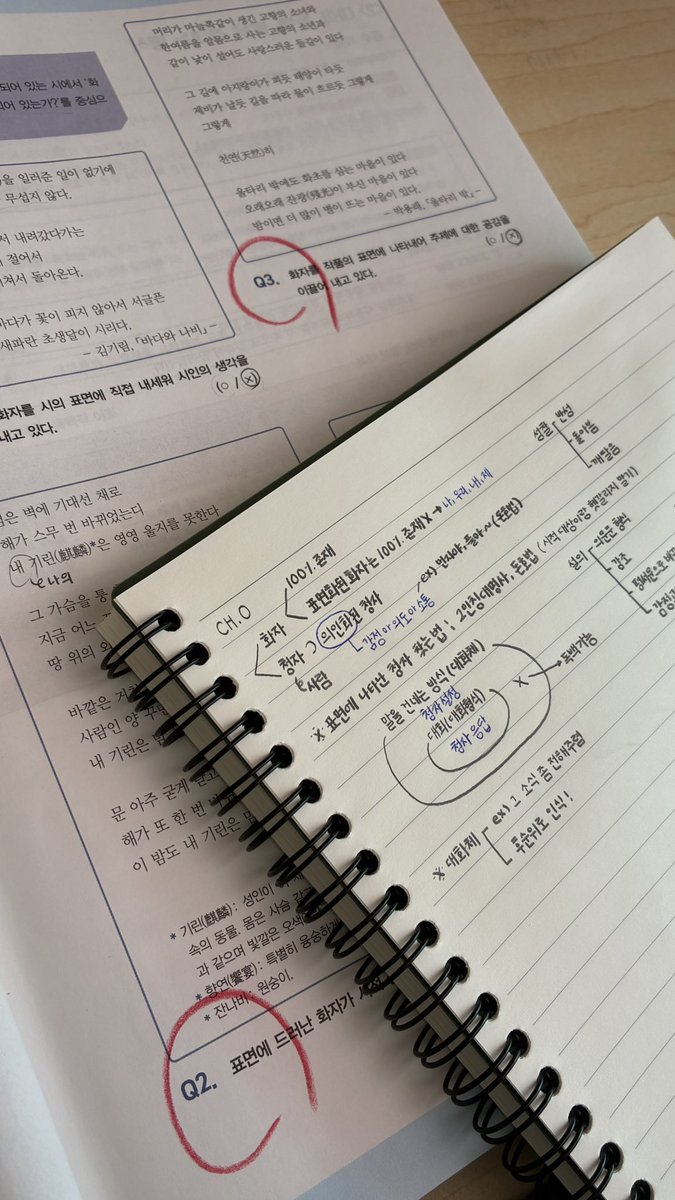 되어 있는 시에서 '화
되어 있는가?'를 중심으
을 일러준 일이 없기에
무섭지 않다.
서 내려갔다가는
절어서
쳐서 돌아온다.
바다가 꽃이 피지 않아서 서글픈
새파란 초생달이 시리다.
- 김기림, 「바다와 나비」 -
화자를 시의 표면에 직접 내세워 시인의 생각을
내고 있다.
(○ / X)
은 벽에 기대선 채로
해가 스무 번 바뀌었는디
내 기린(麒麟)*은 영영 울지를 못한다
나의
그 가슴을 퉁
지금 어느
땅 위의 외
바깥은 거
사람인 양 꾸
내 기린은
문 아주 굳게 닫고
해가 또 한 번
이 밤도 내 기린은
* 기린(麒麟): 성인이
속의 동물. 몸은 사슴 같
과 같으며 빛깔은 오색
* 향연(饗宴): 특별히 융숭하게
* 잔나비: 원숭이.
Q2. 표면에 드러난 화자가
머리가 마늘쪽같이 생긴 고향의 소녀와
한여름을 알몸으로 사는 고향의 소년과
같이 낯이 설어도 사랑스러운 들길이 있다
그 길에 아지랑이가 피듯 태양이 타듯
제비가 날듯 길을 따라 물이 흐르듯 그렇게
그렇게
천연(天然)히
울타리 밖에도 화초를 심는 마을이 있다
오래오래 잔광(殘光)이 부신 마을이 있다
밤이면 더 많이 별이 뜨는 마을이 있다.
- 박용래, 「울타리 밖」 -
Q3. 화자를 작품의 표면에 나타내어 주제에 대한 공감을
이끌어 내고 있다.
(○ / X)
CH.0
화자
100% 존재
표면화된 화자는 100% 존재 X → 나, 우리, 내, 제
청자 ⊃ 의인화된 청자
ex) 만자야, 돌아~ (돈호법)
사람
감정 or 의도 or 소통
※ 표면에 나타난 청자 찾는 법 : 2인칭대명사, 돈호법 (시적 대상이랑 헷갈리지 말기)
말을 건네는 방식 (대화체)
청자 설정
대화 (대화형식)
청자 응답
X
독백 가능
※ 대화체
ex) 그 소식 좀 전해주렴
후순위로 인식!
성찰
반성
돌아봄
깨달음
설의
의문문 형식
강조